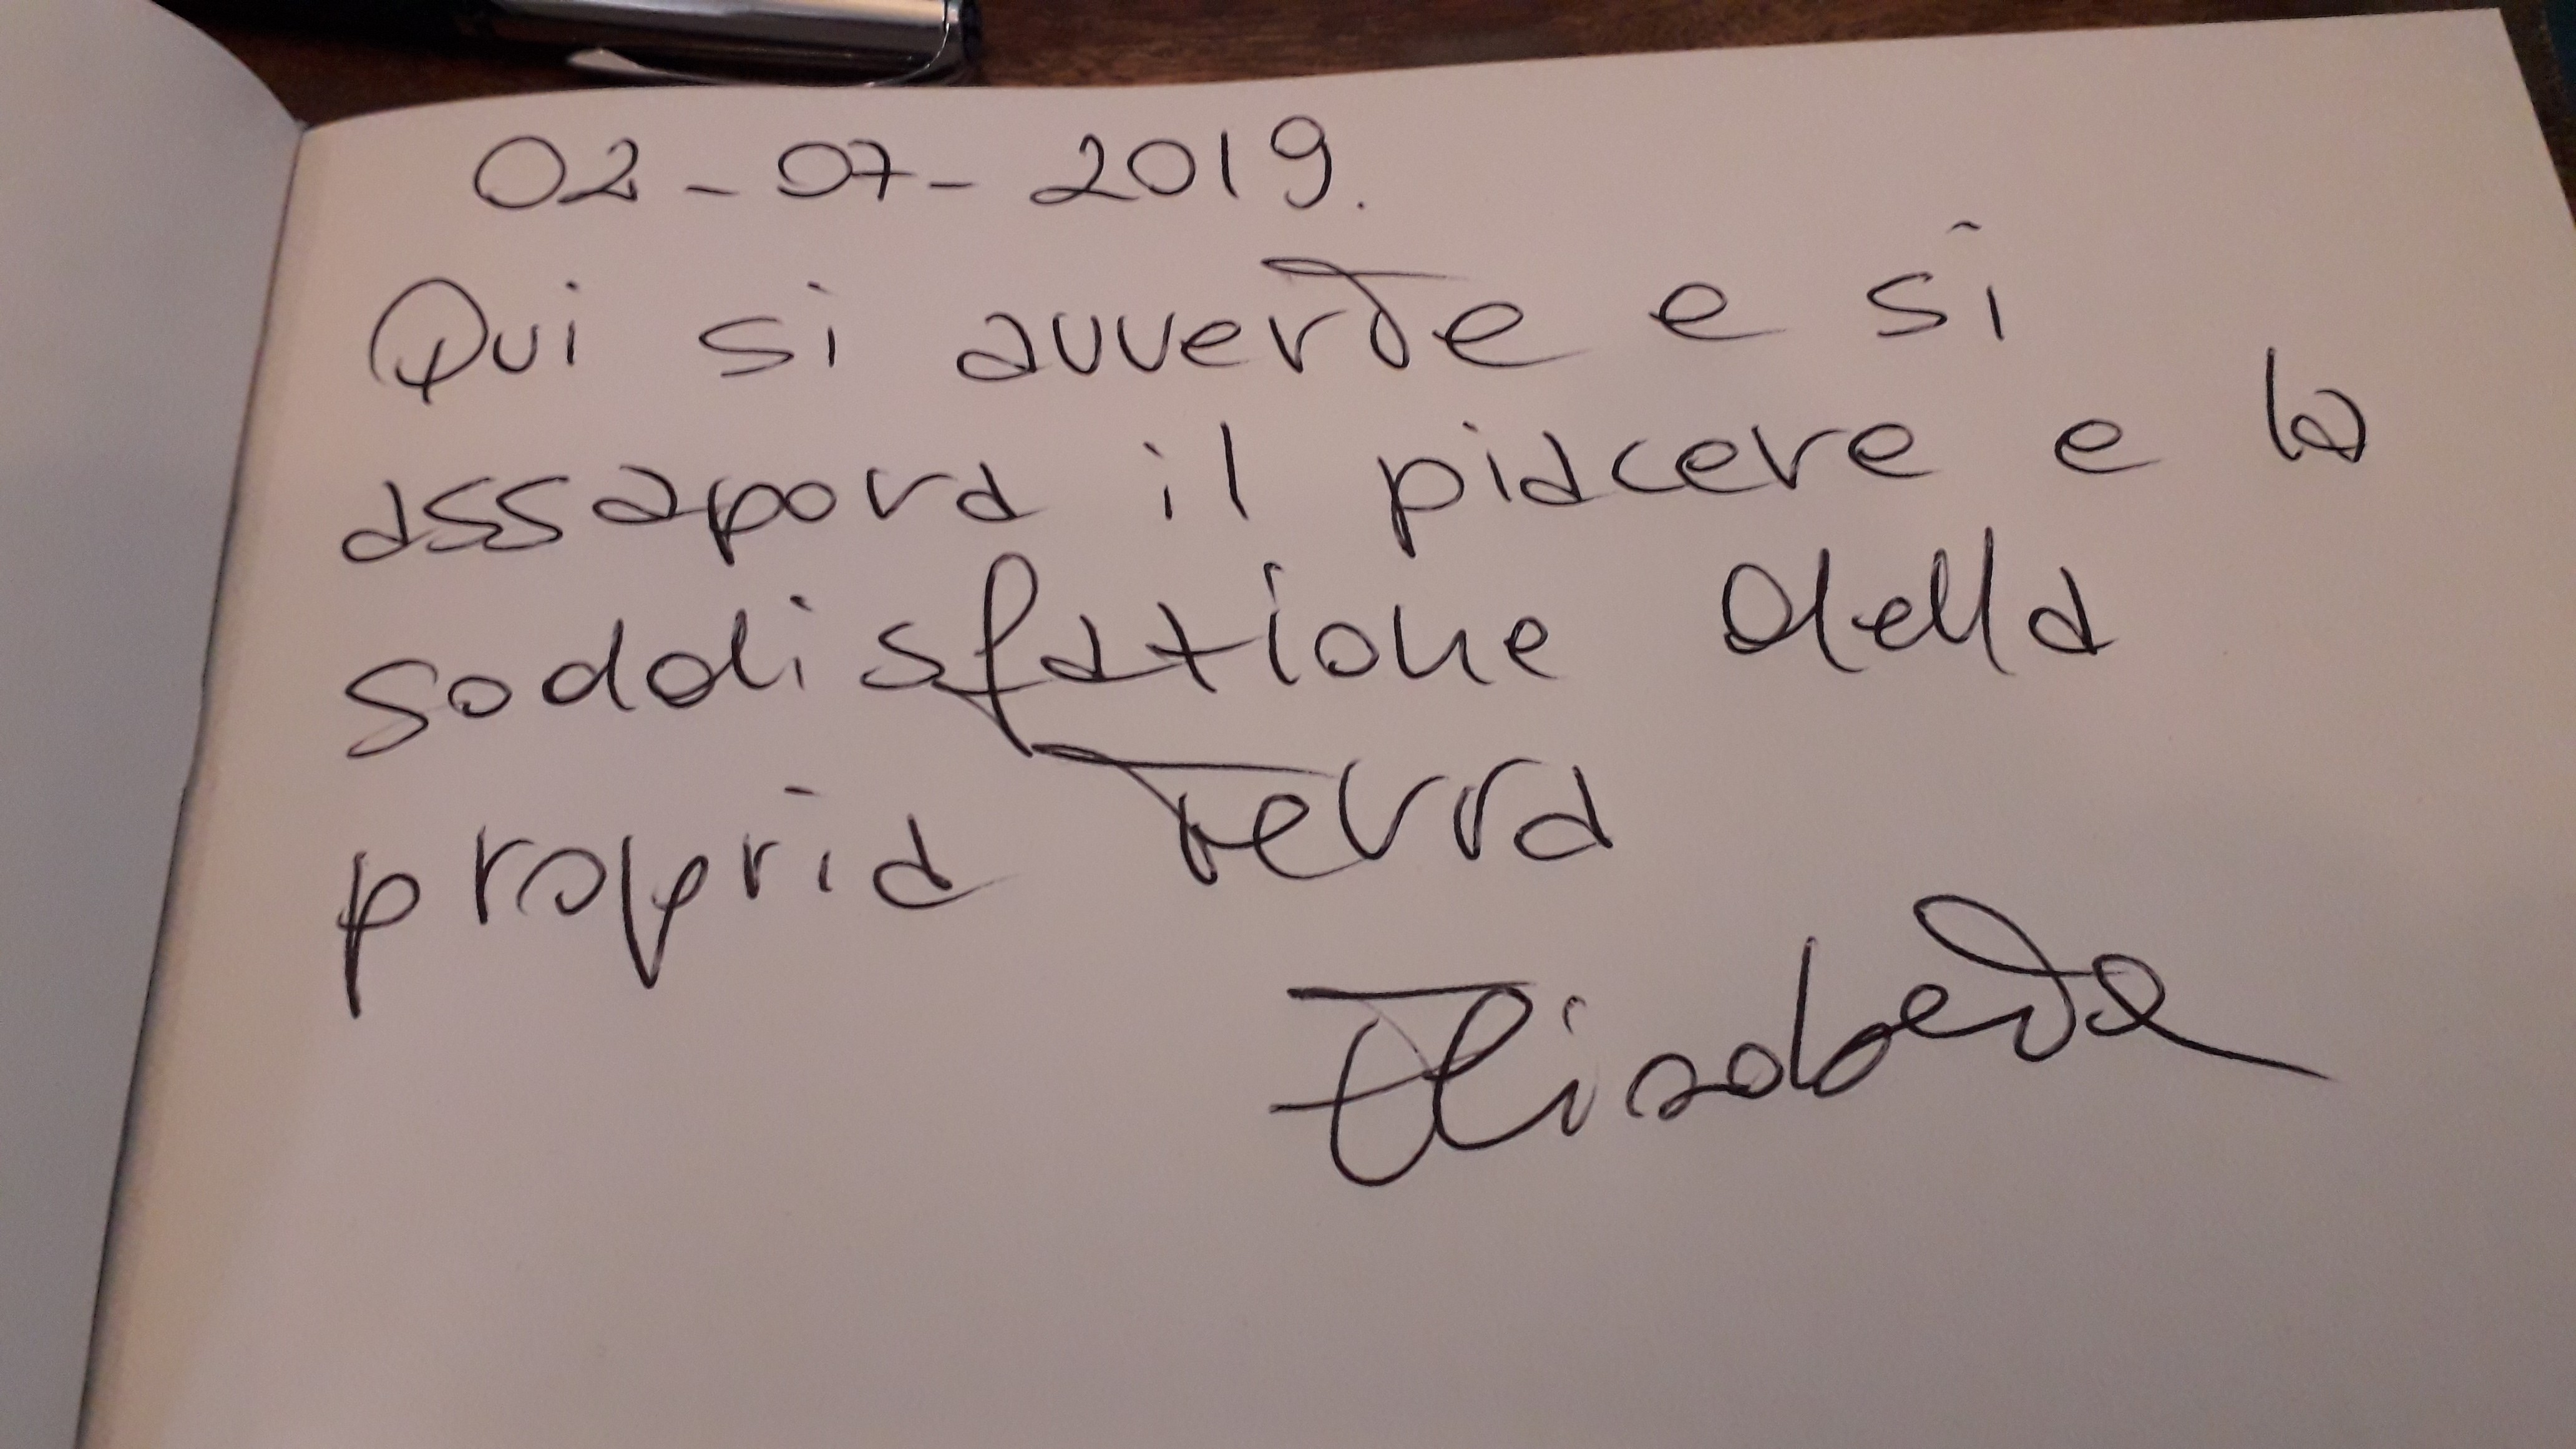 02-07-2019.
Qui si avverte e si
assapora il piacere e la
soddisfazione della
propria Terra
Elisabetta